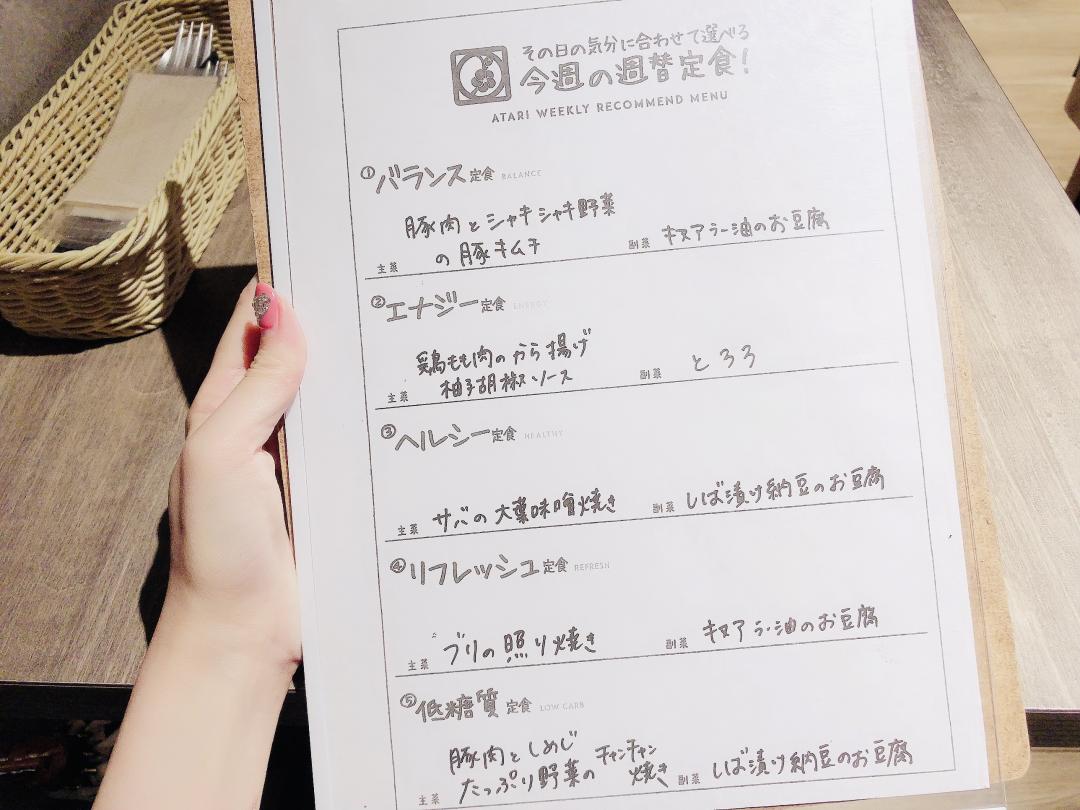 その日の気分に合わせて選べる
今週の週替定食!
ATARI WEEKLY RECOMMEND MENU
①バランス定食 BALANCE
豚肉とシャキシャキ野菜
の豚キムチ
主菜
副菜 キヌアラー油のお豆腐
②エナジー定食 ENERGY
鶏もも肉のから揚げ
柚子胡椒ソース
主菜
副菜 とろろ
③ヘルシー定食 HEALTHY
主菜 サバの大葉味噌焼き
副菜 しば漬け納豆のお豆腐
④リフレッシュ定食 REFRESH
主菜 ブリの照り焼き
副菜 キヌアラー油のお豆腐
⑤低糖質定食 LOW CARB
豚肉としめじ
たっぷり野菜のチャンチャン
焼き
主菜
副菜 しば漬け納豆のお豆腐